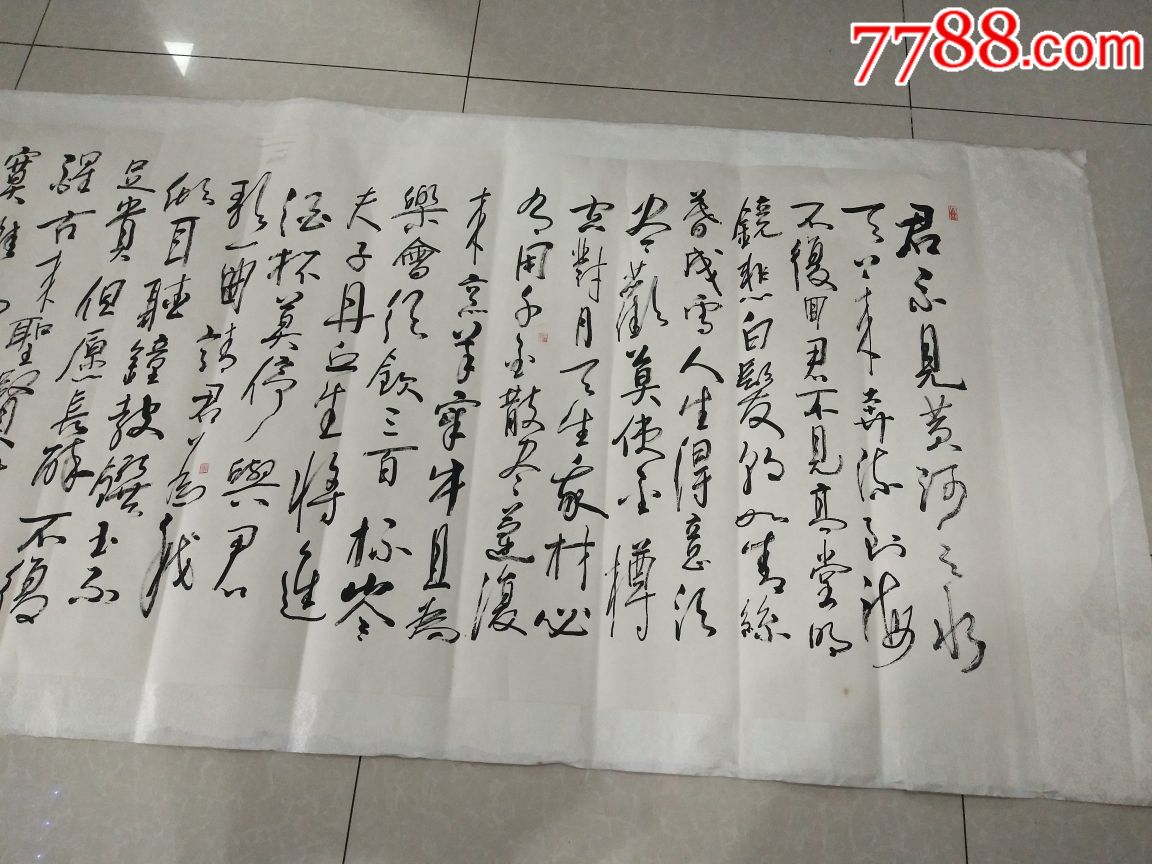 君不見黄河之水
天上来奔流到海
不復回君不見高堂明
鏡悲白髮朝如青絲
暮成雪人生得意須
尽歡莫使金樽
空對月天生我材必
有用千金散尽還復
来烹羊宰牛且為
樂會須飲三百杯岑
夫子丹丘生將進
酒杯莫停與君
歌一曲請君為我
傾耳聽鐘鼓饌玉不
足貴但愿長醉不復
醒古来聖賢
寞惟
7788.com